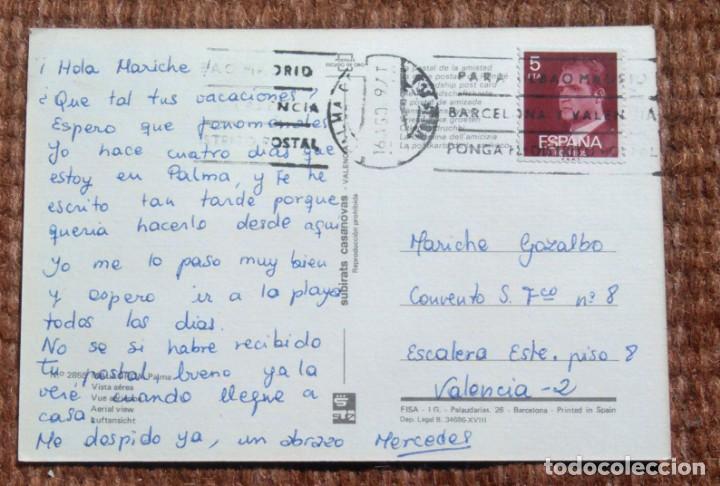 ¡ Hola Mariche !
¿Que tal tus vacaciones?
Espero que fenomenales
Yo hace cuatro dias que
estoy en Palma, y Te he
escrito tan tarde porque
queria hacerlo desde aqui
Yo me lo paso muy bien
y espero ir a la playa
todos los dias.
No se si habre recibido
Tu postal bueno ya la
veré cuando llegue a
casa.
Me despido ya, un abrazo Mercedes
Nº 2868
Palma
Vista aérea
Vue aérienne
Aerial view
Luftansicht
MADRID
VALENCIA
DISTRITO POSTAL
PALMA
PARA BILBAO MADRID
BARCELONA Y VALENCIA
PONGA
5
PTAS
ESPAÑA
CORREOS
La postal de la amistad
subirats casanovas
- VALENCIA
Reproducción prohibida
Mariche Gozalbo
Convento S. Fco nº 8
Escalera Este. piso 8
Valencia - 2
FISA - I G. - Palaudarias, 26 - Barcelona - Printed in Spain
Dep. Legal B. 34686-XVIII
todocoleccion
todocoleccion.net